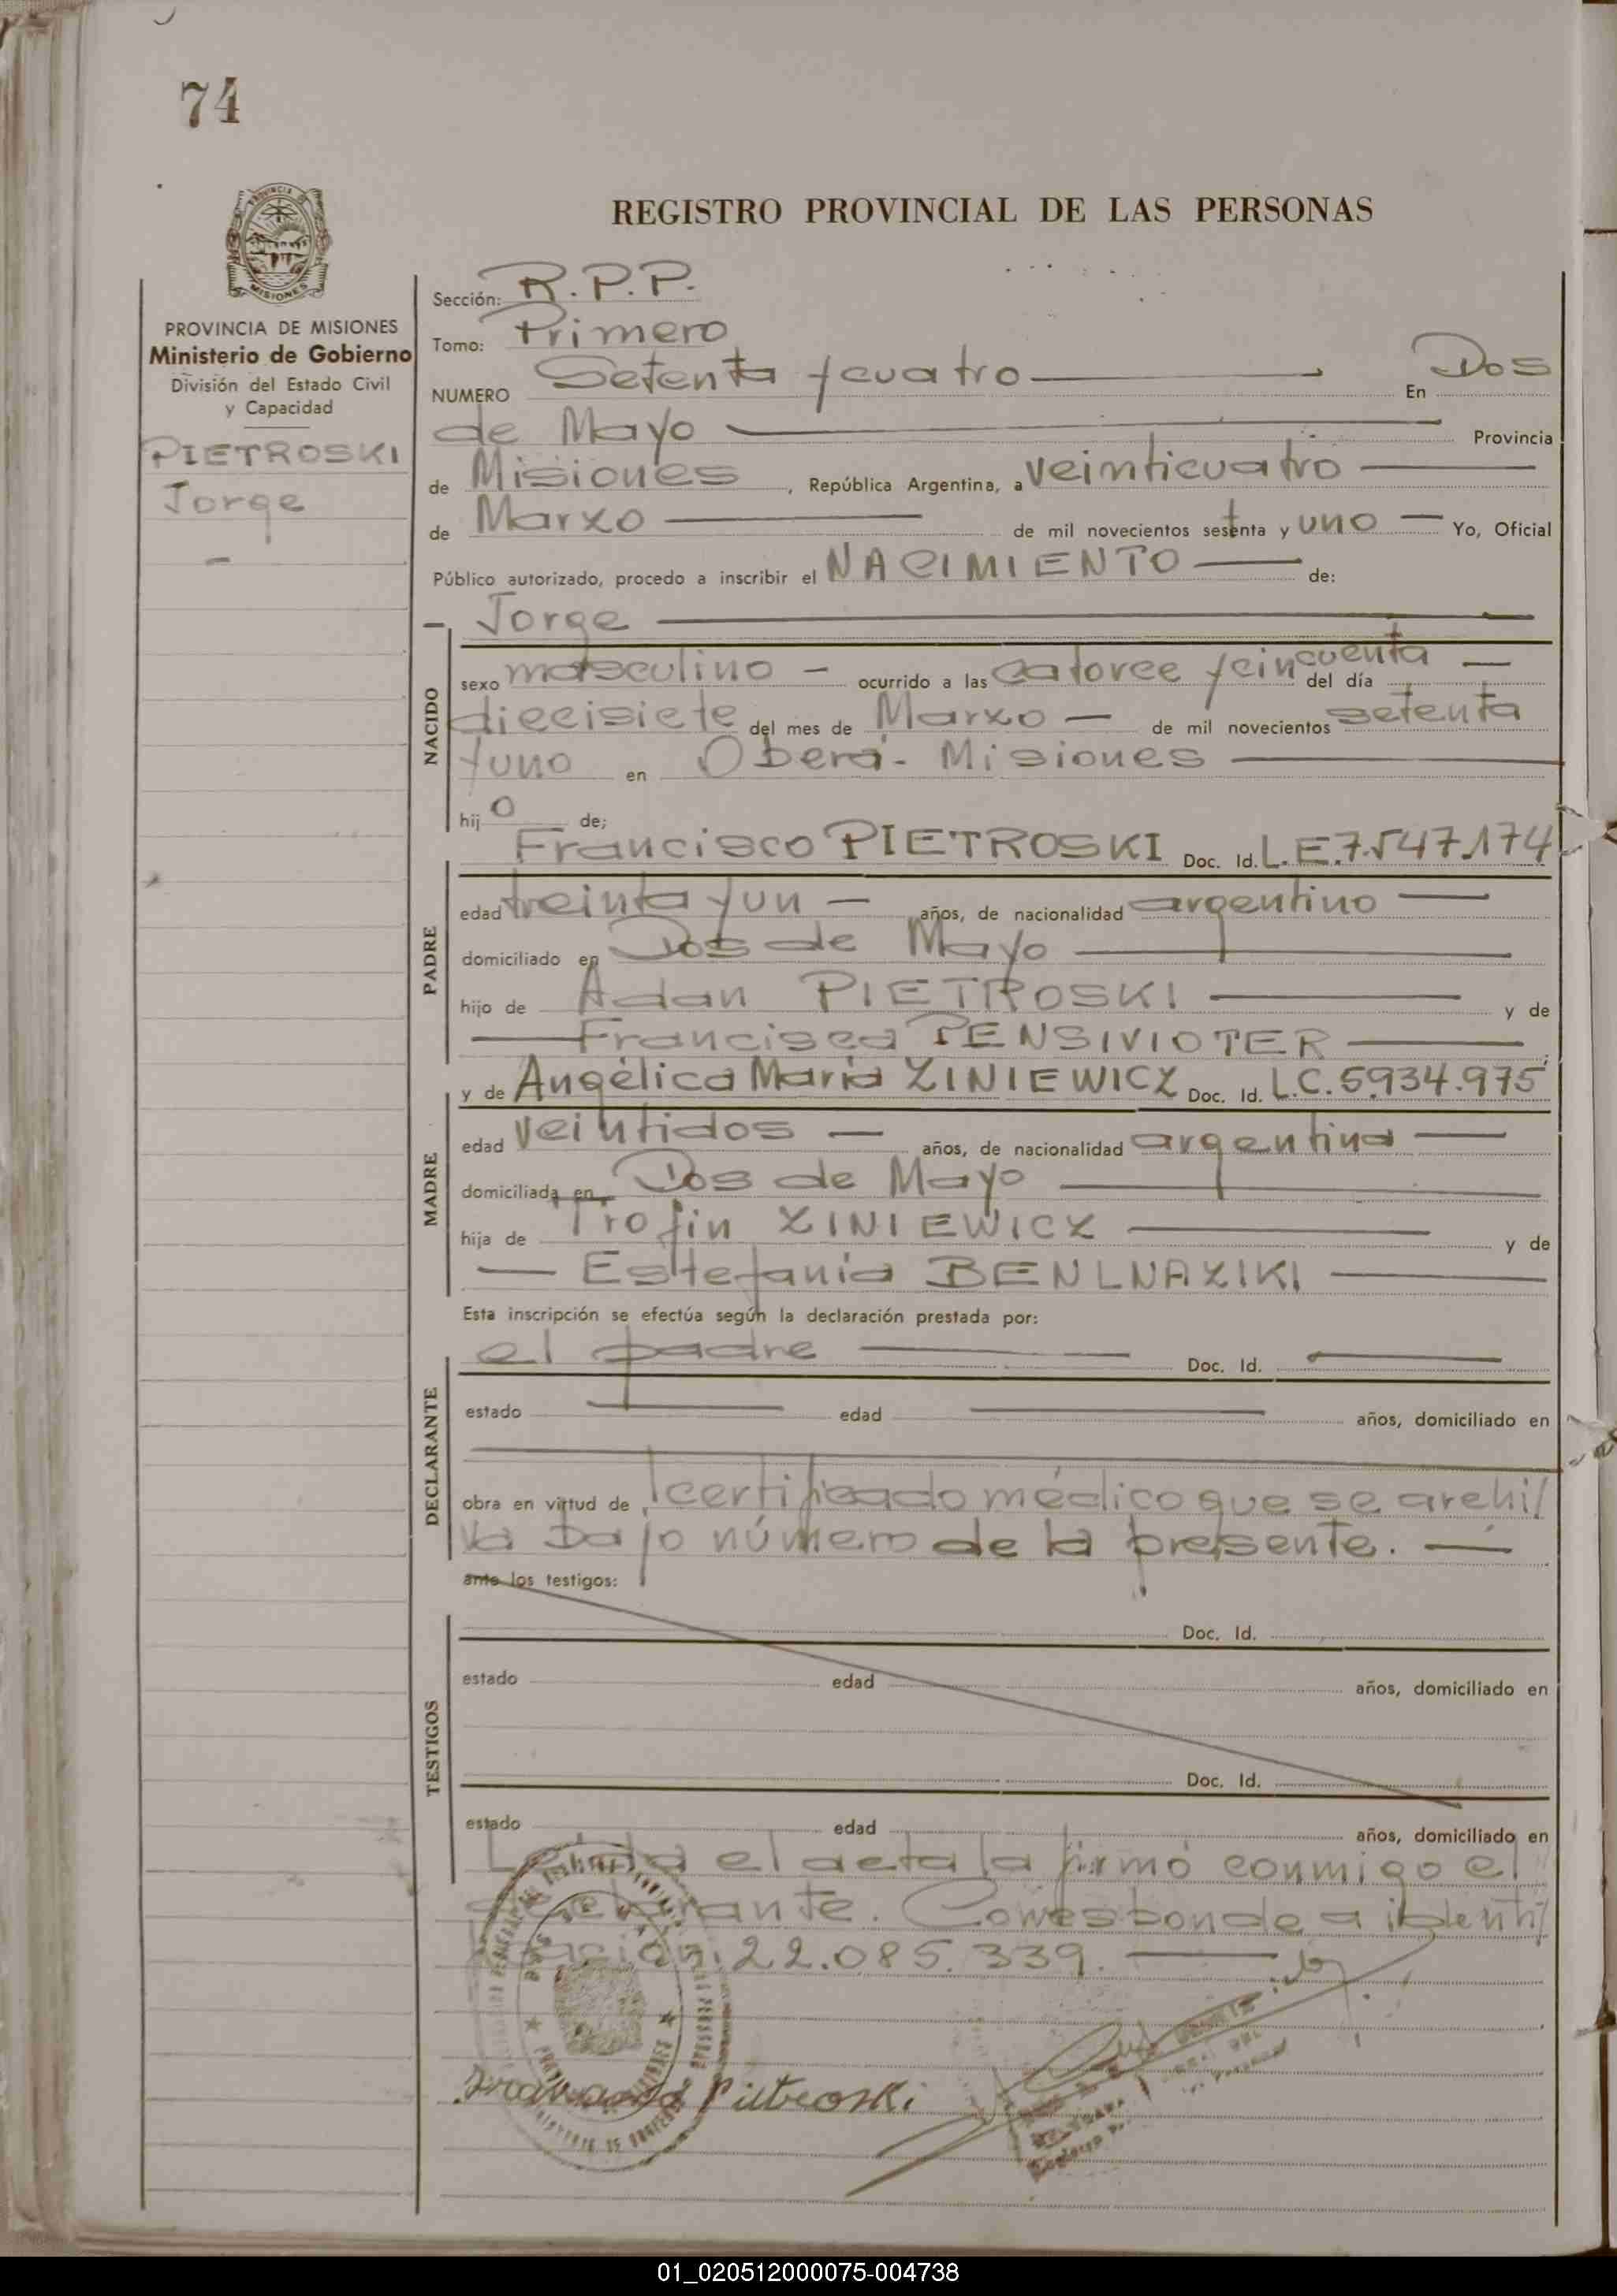 74
REGISTRO PROVINCIAL DE LAS PERSONAS
PROVINCIA DE MISIONES
Ministerio de Gobierno
División del Estado Civil
y Capacidad
PIETROSKI
Jorge
Sección: R.P.P.
Tomo: Primero
NUMERO Setenta y cuatro En Dos
de Mayo Provincia
de Misiones, República Argentina, a veinticuatro
de Marzo de mil novecientos setenta y uno Yo, Oficial
Público autorizado, procedo a inscribir el NACIMIENTO de:
Jorge
NACIDO
sexo masculino - ocurrido a las catorce y cincuenta del día
diecisiete del mes de Marzo - de mil novecientos setenta
y uno en Oberá - Misiones
hijo de;
PADRE
Francisco PIETROSKI Doc. Id. L.E.7.547.174
edad treinta y un - años, de nacionalidad argentino
domiciliado en Dos de Mayo
hijo de Adan PIETROSKI y de
Francisca PENSIVIOTER
MADRE
y de Angélica María ZINIEWICZ Doc. Id. L.C.5934.975
edad veintidos - años, de nacionalidad argentina
domiciliada en Dos de Mayo
hija de Trofin ZINIEWICZ y de
Estefania BENLNAZIKI
Esta inscripción se efectúa según la declaración prestada por:
DECLARANTE
el padre Doc. Id.
estado edad años, domiciliado en
obra en virtud de certificado médico que se archi/
va bajo número de la presente.
ante los testigos:
TESTIGOS
Doc. Id.
estado edad años, domiciliado en
Doc. Id.
estado edad años, domiciliado en
Leída el acta la firmó conmigo el
declarante. Corresponde a identi/
ficación: 22.085.339.
Francisco Pietroski
01_020512000075-004738